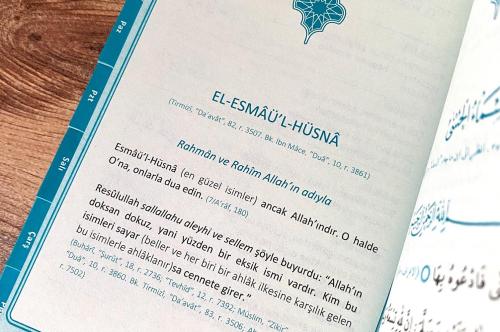 Paz
Pzt
Salı
Çarş
EL-ESMÂÜ’L-HÜSNÂ
(Tirmizî, “Da‘avât”, 82, r. 3507. Bk. İbn Mâce, “Duâ”, 10, r. 3861)
Rahmân ve Rahîm Allah’ın adıyla
Esmâü’l-Hüsnâ (en güzel isimler) ancak Allah’ındır. O halde
O’na, onlarla dua edin. (7/A‘râf, 180)
Resûlullah sallallahu aleyhi ve sellem şöyle buyurdu: “Allah’ın
doksan dokuz, yani yüzden bir eksik ismi vardır. Kim bu
isimleri sayar (beller ve her biri bir ahlâk ilkesine karşılık gelen
bu isimlerle ahlâklanır)sa cennete girer.”
(Buhârî, “Şurût”, 18, r. 2736; “Tevhîd”, 12, r. 7392; Müslim, “Zikir”,
“Duâ”, 10, r. 3860. Bk. Tirmizî, “Da‘avât”, 83, r. 3506,
r. 7502)
فَادْعُوهُ بِهَا